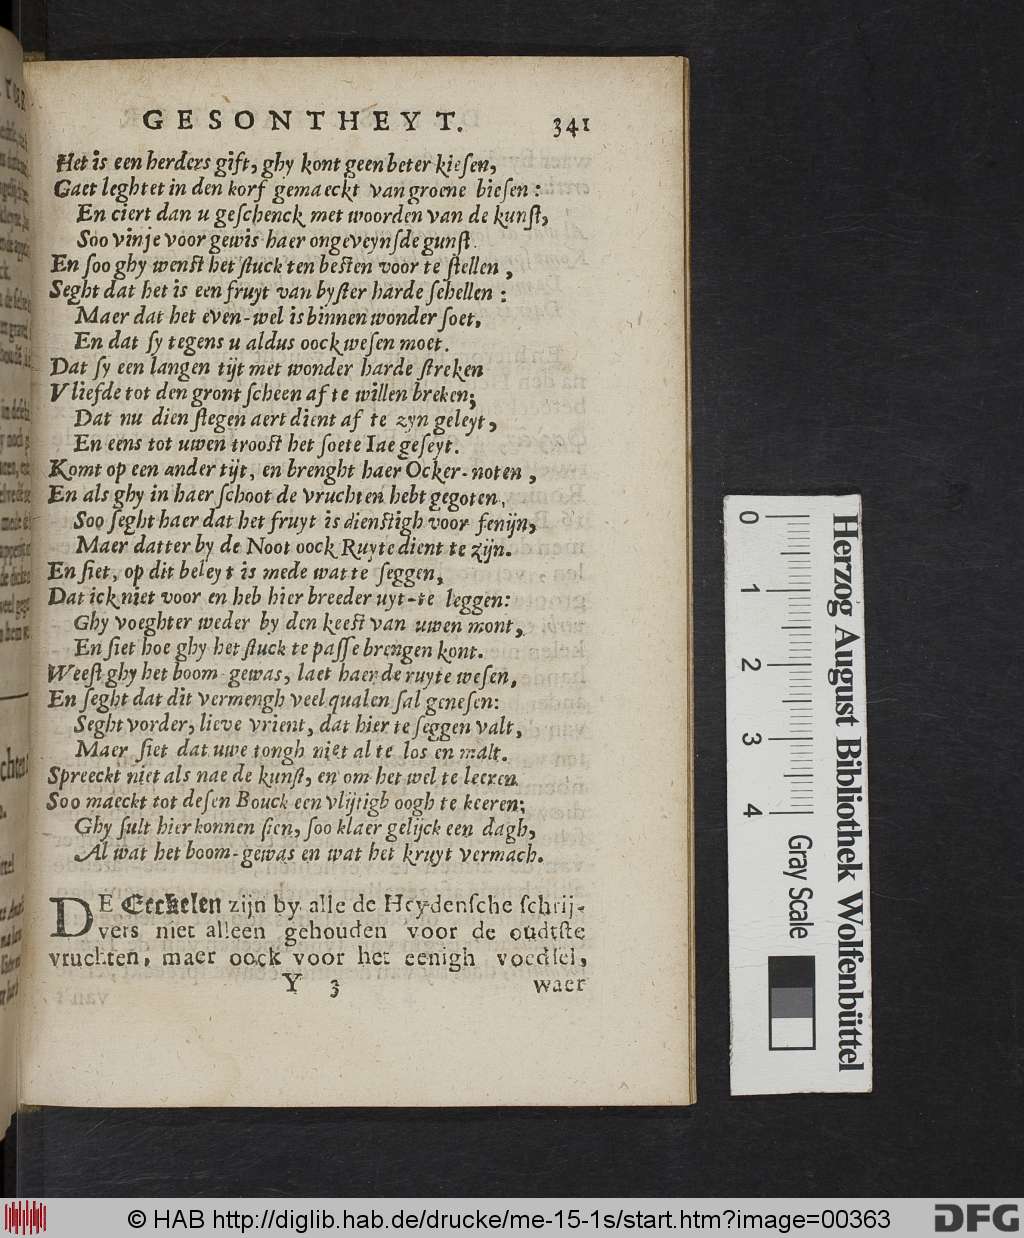 GESONTHEYT. 341
Het is een herders gift, ghy kont geen beter kieſen,
Gaet leght et in den korf gemaeckt van groene bieſen:
En ciert dan u geſchenck met woorden van de kunſt,
Soo vinje voor gewis haer ongeveynſde gunſt.
En ſoo ghy wenſt het ſtuck ten beſten voor te ſtellen,
Seght dat het is een fruyt van byſter harde ſchellen:
Maer dat het even-wel is binnen wonder ſoet,
En dat ſy tegens u aldus oock weſen moet.
Dat ſy een langen tijt met wonder harde ſtreken
V liefde tot den gront ſcheen af te willen breken;
Dat nu dien ſtegen aert dient af te zyn geleyt,
En eens tot uwen trooſt het ſoete Iae geſeyt.
Komt op een ander tijt, en brenght haer Ocker-noten,
En als ghy in haer ſchoot de vruchten hebt gegoten,
Soo ſeght haer dat het fruyt is dienſtigh voor fenijn,
Maer datter by de Noot oock Ruyte dient te zijn.
En ſiet, op dit beleyt is mede wat te ſeggen,
Dat ick niet voor en heb hier breeder uyt-te leggen:
Ghy voeghter weder by den keeſt van uwen mont,
En ſiet hoe ghy het ſtuck te paſſe brengen kont.
Weeſt ghy het boom-gewas, laet haer de ruyte weſen,
En ſeght dat dit vermengh veel qualen ſal geneſen:
Seght vorder, lieve vrient, dat hier te ſeggen valt,
Maer ſiet dat uwe tongh niet al te los en malt.
Spreeckt niet als nae de kunſt, en om het wel te leeren
Soo maeckt tot deſen Bouck een vlijtigh oogh te keeren;
Ghy ſult hier konnen ſien, ſoo klaer gelijck een dagh,
Al wat het boom-gewas en wat het kruyt vermach.
DE Eeckelen zijn by alle de Heydenſche ſchrij-
vers niet alleen gehouden voor de oudtſte
vruchten, maer oock voor het eenigh voedſel,
Y 3 waer
0 1 2 3 4
Herzog August Bibliothek Wolfenbüttel
Gray Scale
© HAB http://diglib.hab.de/drucke/me-15-1s/start.htm?image=00363
DFG